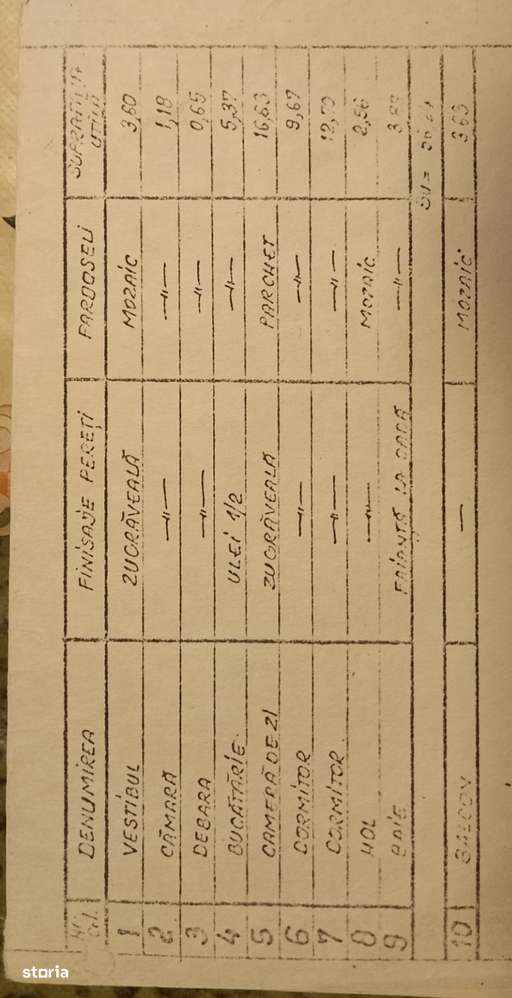 DENUMIREA FINISAJE PEREȚI PARDOSELI SUPRAFAȚA UTILĂ
1 VESTIBUL ZUGRĂVEALĂ MOZAIC 3,60
2 CĂMARĂ —"— —"— 1,18
3 DEBARA —"— —"— 0,65
4 BUCĂTĂRIE ULEI 1/2 —"— 5,37
5 CAMERĂ DE ZI ZUGRĂVEALĂ PARCHET 16,63
6 DORMITOR —"— —"— 9,67
7 DORMITOR —"— —"—
8 HOL —"— MOZAIC 2,56
9 BAIE FAIANȚĂ LA CADĂ —"—
SU =
10 BALCON — MOZAIC 3,63
storia